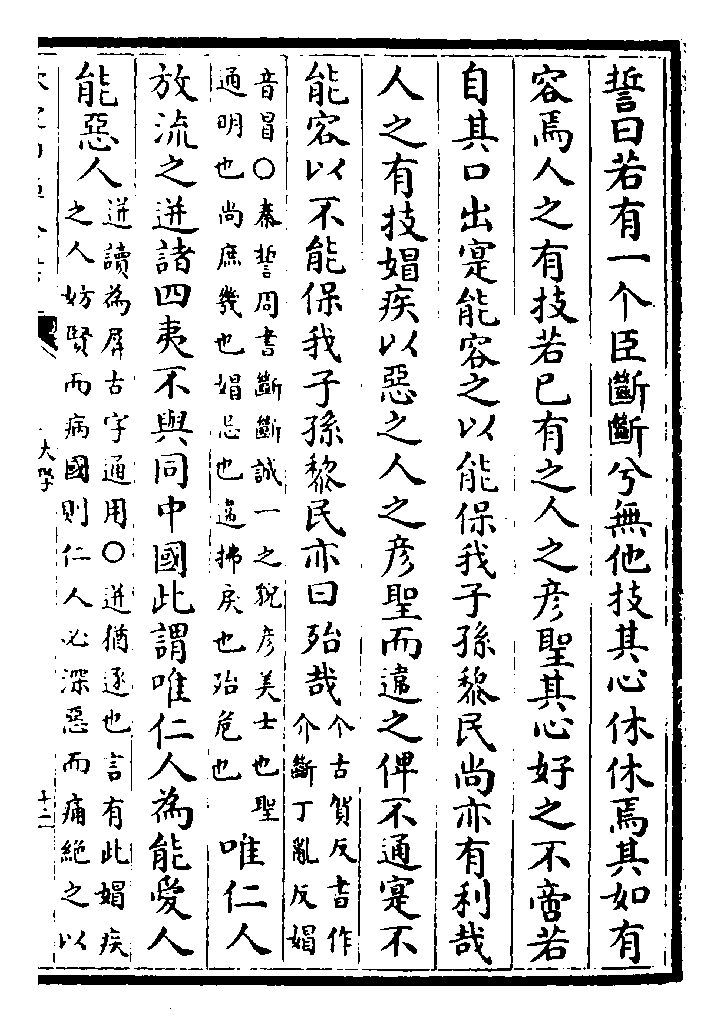 誓曰若有一个臣斷斷兮無他技其心休休焉其如有
容焉人之有技若己有之人之彦聖其心好之不啻若
自其口出寔能容之以能保我子孫黎民尚亦有利哉
人之有技媢疾以惡之人之彦聖而違之俾不通寔不
能容以不能保我子孫黎民亦曰殆哉
个古賀反書作
介斷丁亂反媢
音冒○秦誓周書斷斷誠一之貌彦美士也聖
通明也尚庶幾也媢忌也違拂戾也殆危也
唯仁人
放流之迸諸四夷不與同中國此謂唯仁人為能愛人
能惡人
迸讀為屏古字通用○迸猶逐也言有此媢疾
之人妨賢而病國則仁人必深惡而痛絶之以
大學
十二